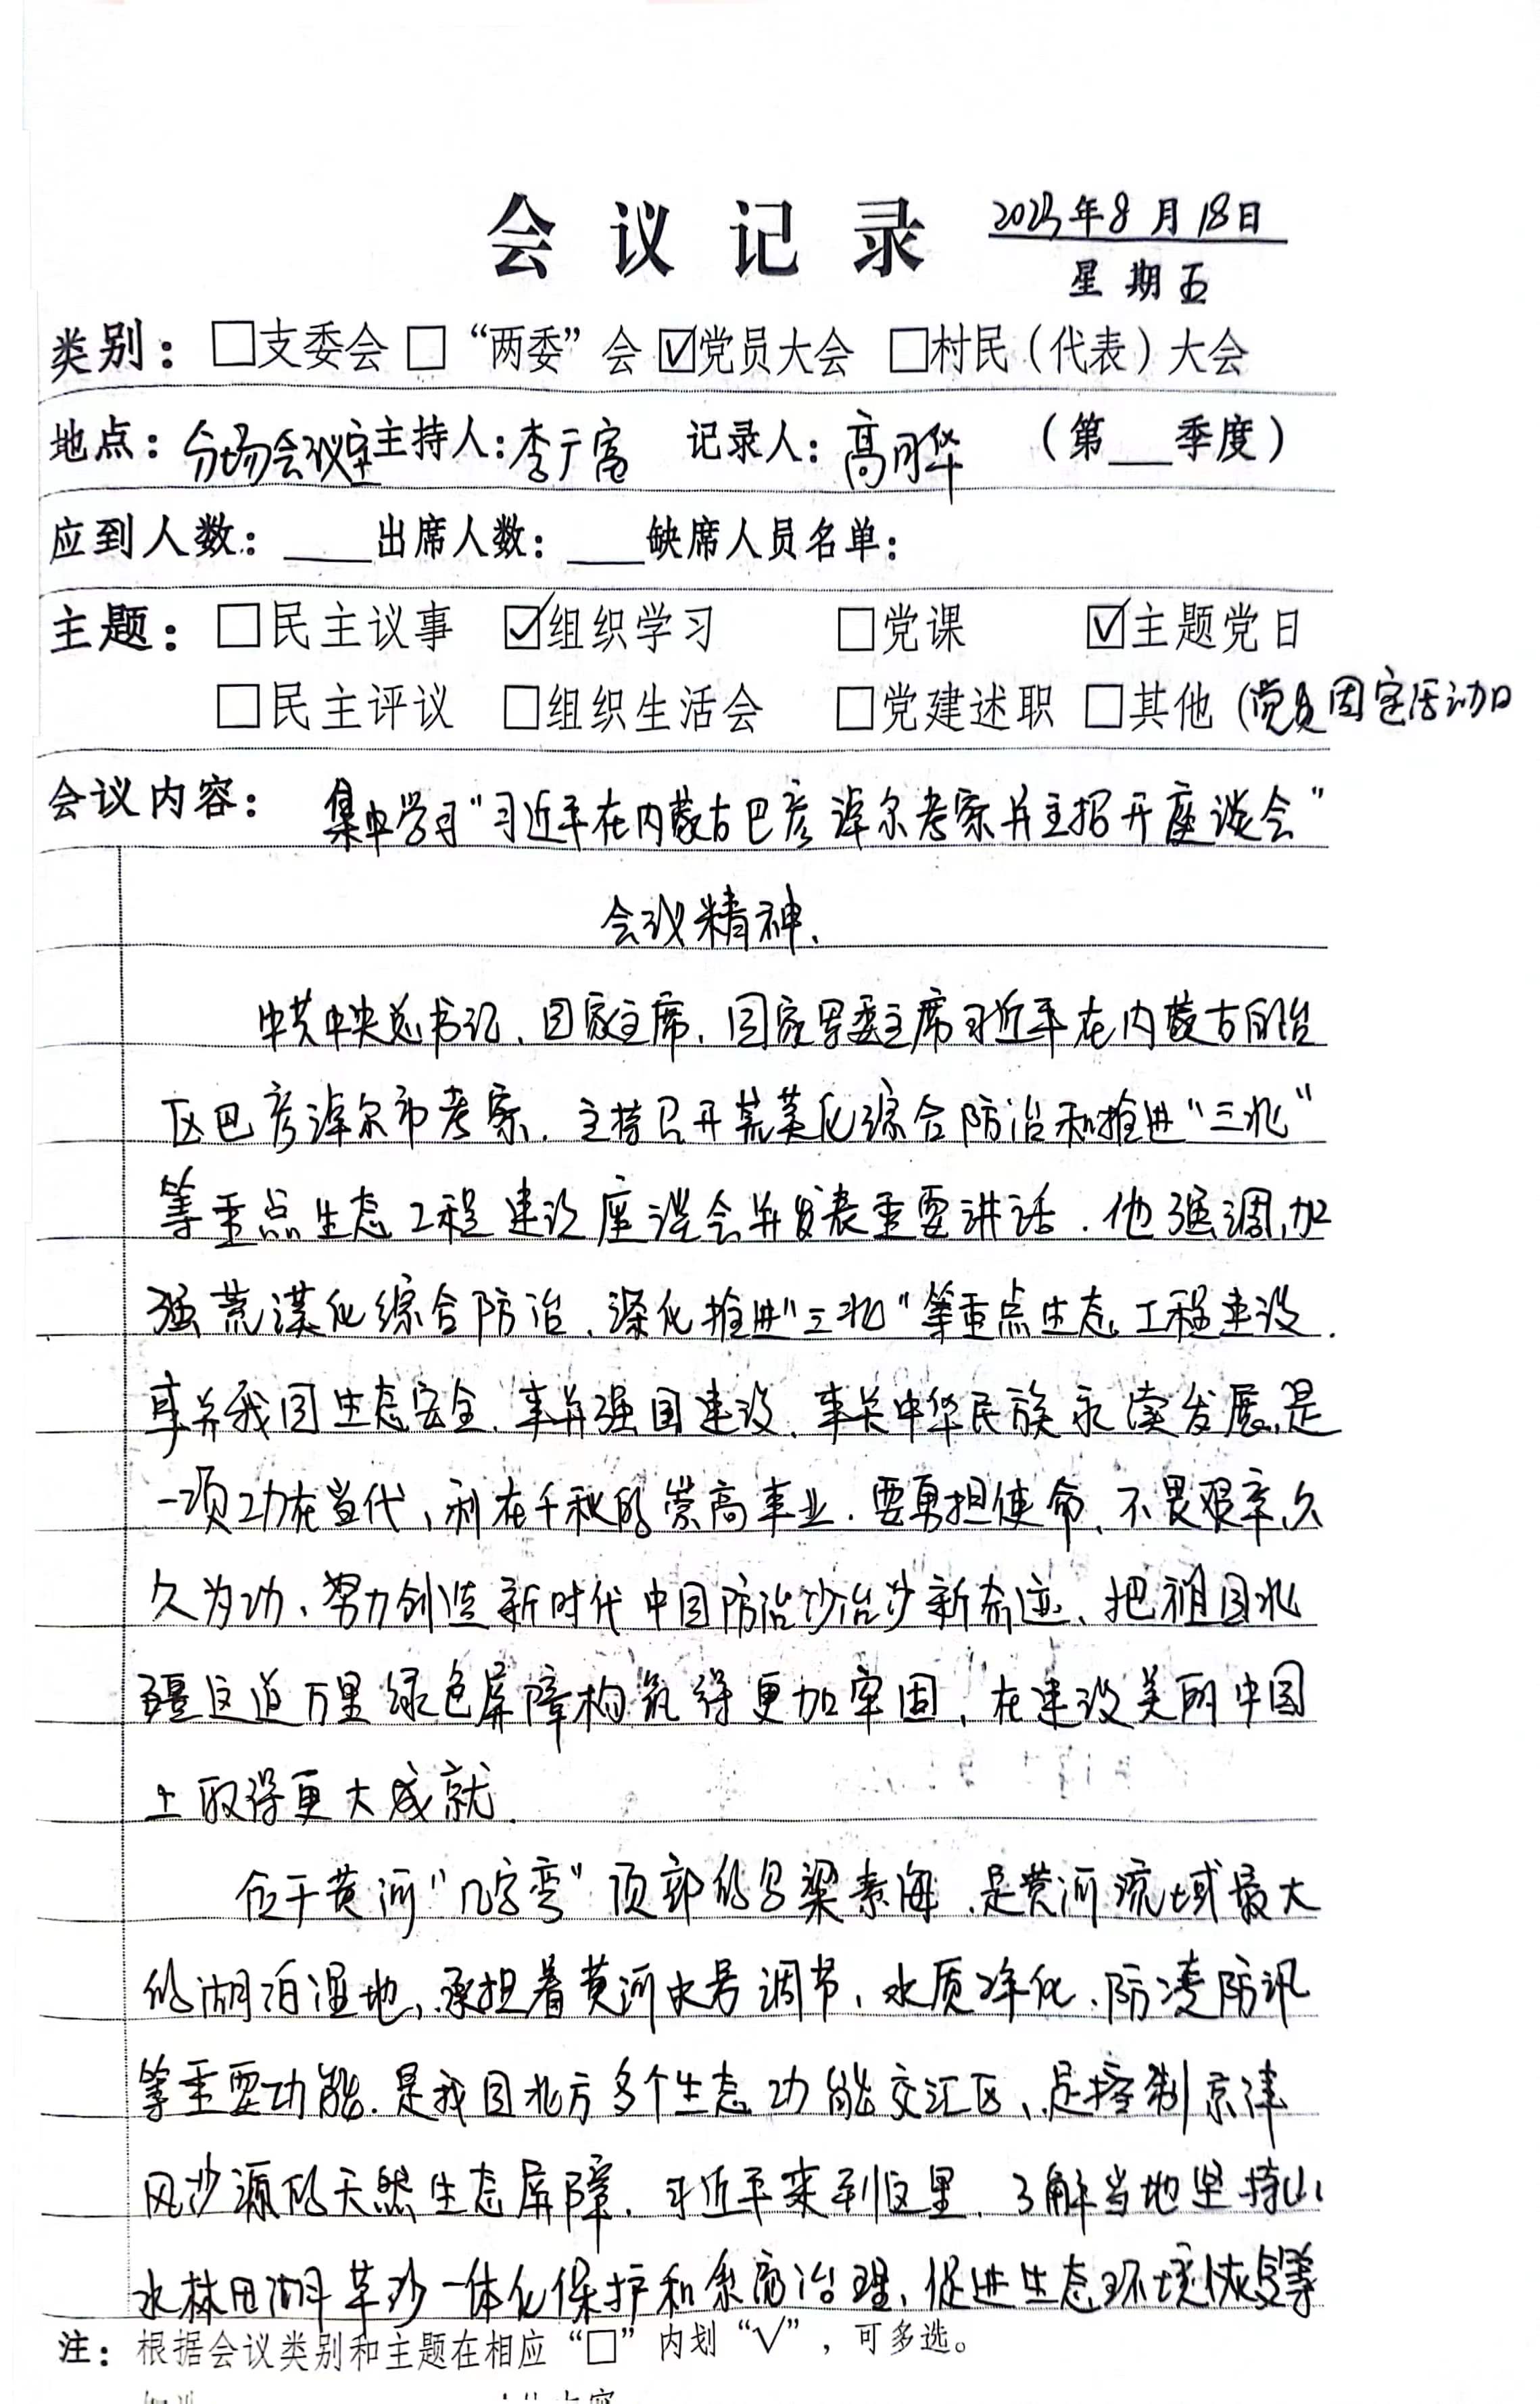 会议记录 2023年8月18日
星期五
类别：□支委会 □“两委”会 ☑党员大会 □村民（代表）大会
地点：分场会议室 主持人：李广富 记录人：高月华 （第___季度）
应到人数：____出席人数：____缺席人员名单：
主题：□民主议事 ☑组织学习 □党课 ☑主题党日
□民主评议 □组织生活会 □党建述职 □其他（党员固定活动日
会议内容：集中学习“习近平在内蒙古巴彦淖尔考察并主招开座谈会”
会议精神、
中共中央总书记、国家主席、国家军委主席习近平在内蒙古自治
区巴彦淖尔市考察、主持召开荒漠化综合防治和推进“三北”
等重点生态工程建设座谈会并发表重要讲话．他强调，加
强荒漠化综合防治、深化推进“三北”等重点生态工程建设．
事关我国生态安全、事关强国建设、事关中华民族永续发展，是
一项功在当代，利在千秋的崇高事业．要勇担使命、不畏艰辛、久
久为功、努力创造新时代中国防治沙治沙新奇迹、把祖国北
疆这道万里绿色屏障构筑得更加牢固，在建设美丽中国
上取得更大成就．
位于黄河“几字弯”顶部的乌梁素海，是黄河流域最大
的湖泊湿地，承担着黄河水号调节、水质净化、防凌防汛
等重要功能．是我国北方多个生态功能交汇区、是控制京津
风沙源的天然生态屏障．习近平来到这里．了解当地坚持山
水林田湖草沙一体化保护和系统治理，促进生态环境恢复等
注：根据会议类别和主题在相应“□”内划“√”，可多选。